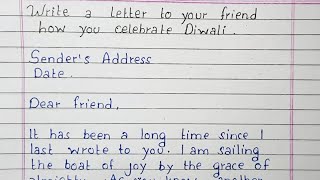 Write a letter to your friend
how you celebrate Diwali.
Sender's Address
Date.
Dear friend,
It has been a long time since I
last wrote to you. I am sailing
the boat of joy by the grace of